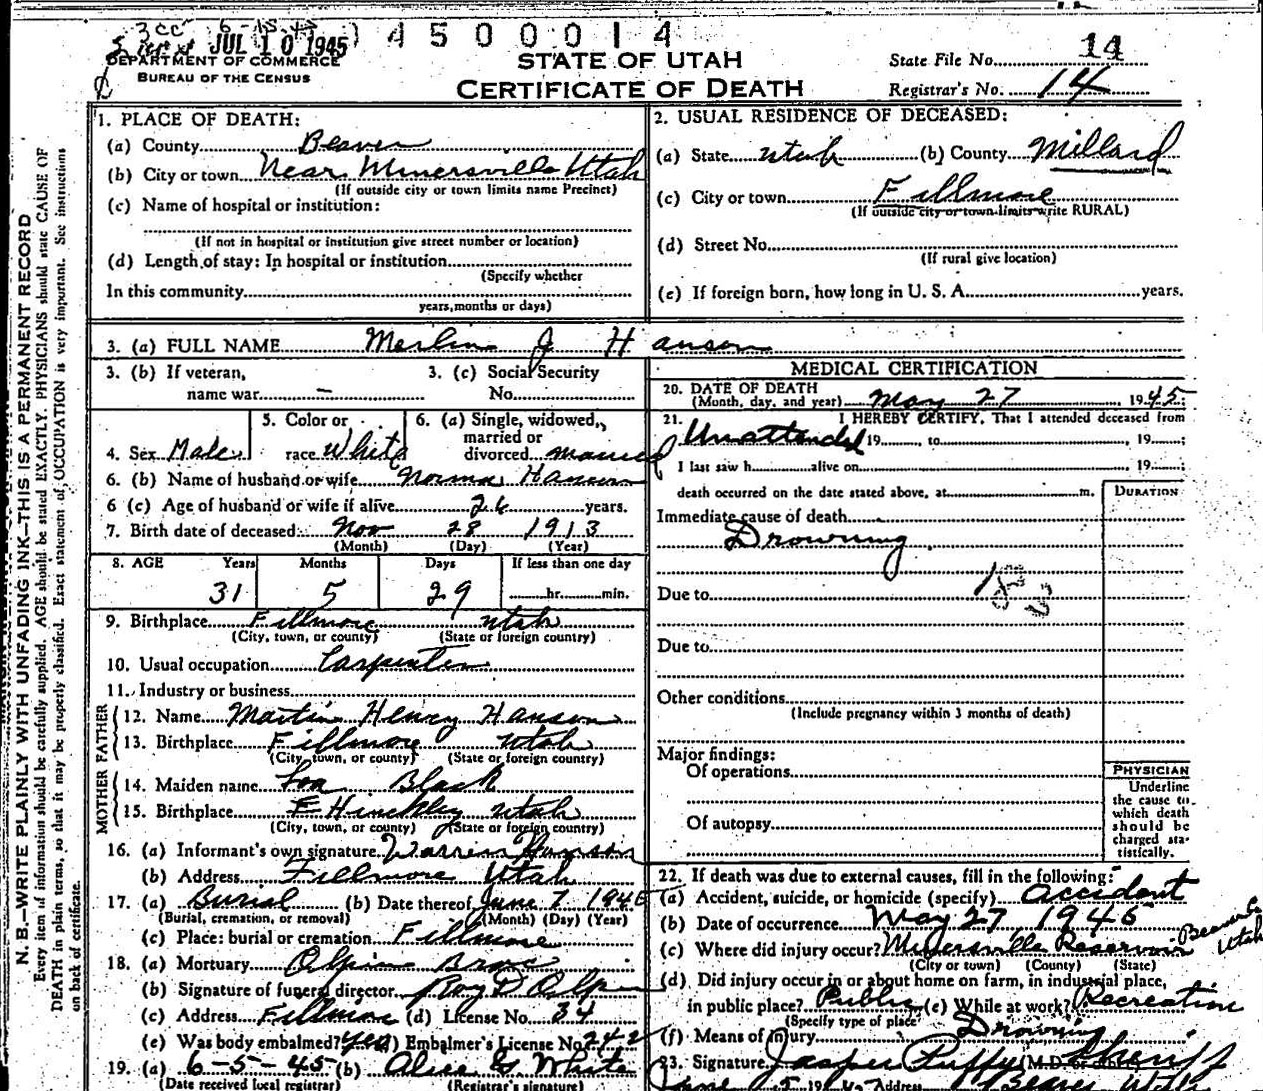 3cc 6-15-45
JUL 10 1945 4500014
DEPARTMENT OF COMMERCE
BUREAU OF THE CENSUS
STATE OF UTAH
CERTIFICATE OF DEATH
State File No. 14
Registrar's No. 14
N. B.—WRITE PLAINLY WITH UNFADING INK—THIS IS A PERMANENT RECORD
Every item of information should be carefully supplied. AGE should be stated EXACTLY. PHYSICIANS should state CAUSE OF
DEATH in plain terms, so that it may be properly classified. Exact statement of OCCUPATION is very important. See instructions
on back of certificate.
1. PLACE OF DEATH:
(a) County Beaver
(b) City or town Near Minersville Utah
(If outside city or town limits name Precinct)
(c) Name of hospital or institution:
(If not in hospital or institution give street number or location)
(d) Length of stay: In hospital or institution
(Specify whether
In this community
years, months or days)
2. USUAL RESIDENCE OF DECEASED:
(a) State Utah (b) County Millard
(c) City or town Fillmore
(If outside city or town limits write RURAL)
(d) Street No.
(If rural give location)
(e) If foreign born, how long in U. S. A. years.
3. (a) FULL NAME Merlin J Hanson
3. (b) If veteran, 3. (c) Social Security
name war — No.
4. Sex Male
5. Color or
race White
6. (a) Single, widowed,
married or
divorced married
6. (b) Name of husband or wife Norma Hanson
6 (c) Age of husband or wife if alive 26 years.
7. Birth date of deceased: Nov 28 1913
(Month) (Day) (Year)
8. AGE Years Months Days If less than one day
31 5 29 hr. min.
9. Birthplace Fillmore Utah
(City, town, or county) (State or foreign country)
10. Usual occupation Carpenter
11. Industry or business
FATHER
12. Name Martin Henry Hanson
13. Birthplace Fillmore Utah
(City, town, or county) (State or foreign country)
MOTHER
14. Maiden name Loa Black
15. Birthplace Hinckley Utah
(City, town, or county) (State or foreign country)
16. (a) Informant's own signature Warren Hanson
(b) Address Fillmore Utah
17. (a) Burial (b) Date thereof June 7 1945
(Burial, cremation, or removal) (Month) (Day) (Year)
(c) Place: burial or cremation Fillmore
18. (a) Mortuary Olpin Bros
(b) Signature of funeral director Roy D Olpin
(c) Address Fillmore (d) License No. 34
(e) Was body embalmed? Yes (f) Embalmer's License No. 242
19. (a) 6-5-45 (b) Alice G White
(Date received local registrar) (Registrar's signature)
MEDICAL CERTIFICATION
20. DATE OF DEATH
(Month, day, and year) May 27 1945
21. I HEREBY CERTIFY, That I attended deceased from
Unattended 19 , to , 19 ;
I last saw h alive on , 19 ;
death occurred on the date stated above, at m.
DURATION
Immediate cause of death
Drowning
183
Due to
Due to
Other conditions
(Include pregnancy within 3 months of death)
Major findings:
Of operations
Of autopsy
PHYSICIAN
Underline
the cause to
which death
should be
charged sta-
tistically.
22. If death was due to external causes, fill in the following:
(a) Accident, suicide, or homicide (specify) Accident
(b) Date of occurrence May 27, 1945
(c) Where did injury occur? Minersville Reservoir Beaver Co Utah
(City or town) (County) (State)
(d) Did injury occur in or about home on farm, in industrial place,
in public place? Public (e) While at work? Recreation
(Specify type of place
(f) Means of injury Drowning
23. Signature Jasper Puffy (M.D. or other) Sheriff
Address Beaver Utah